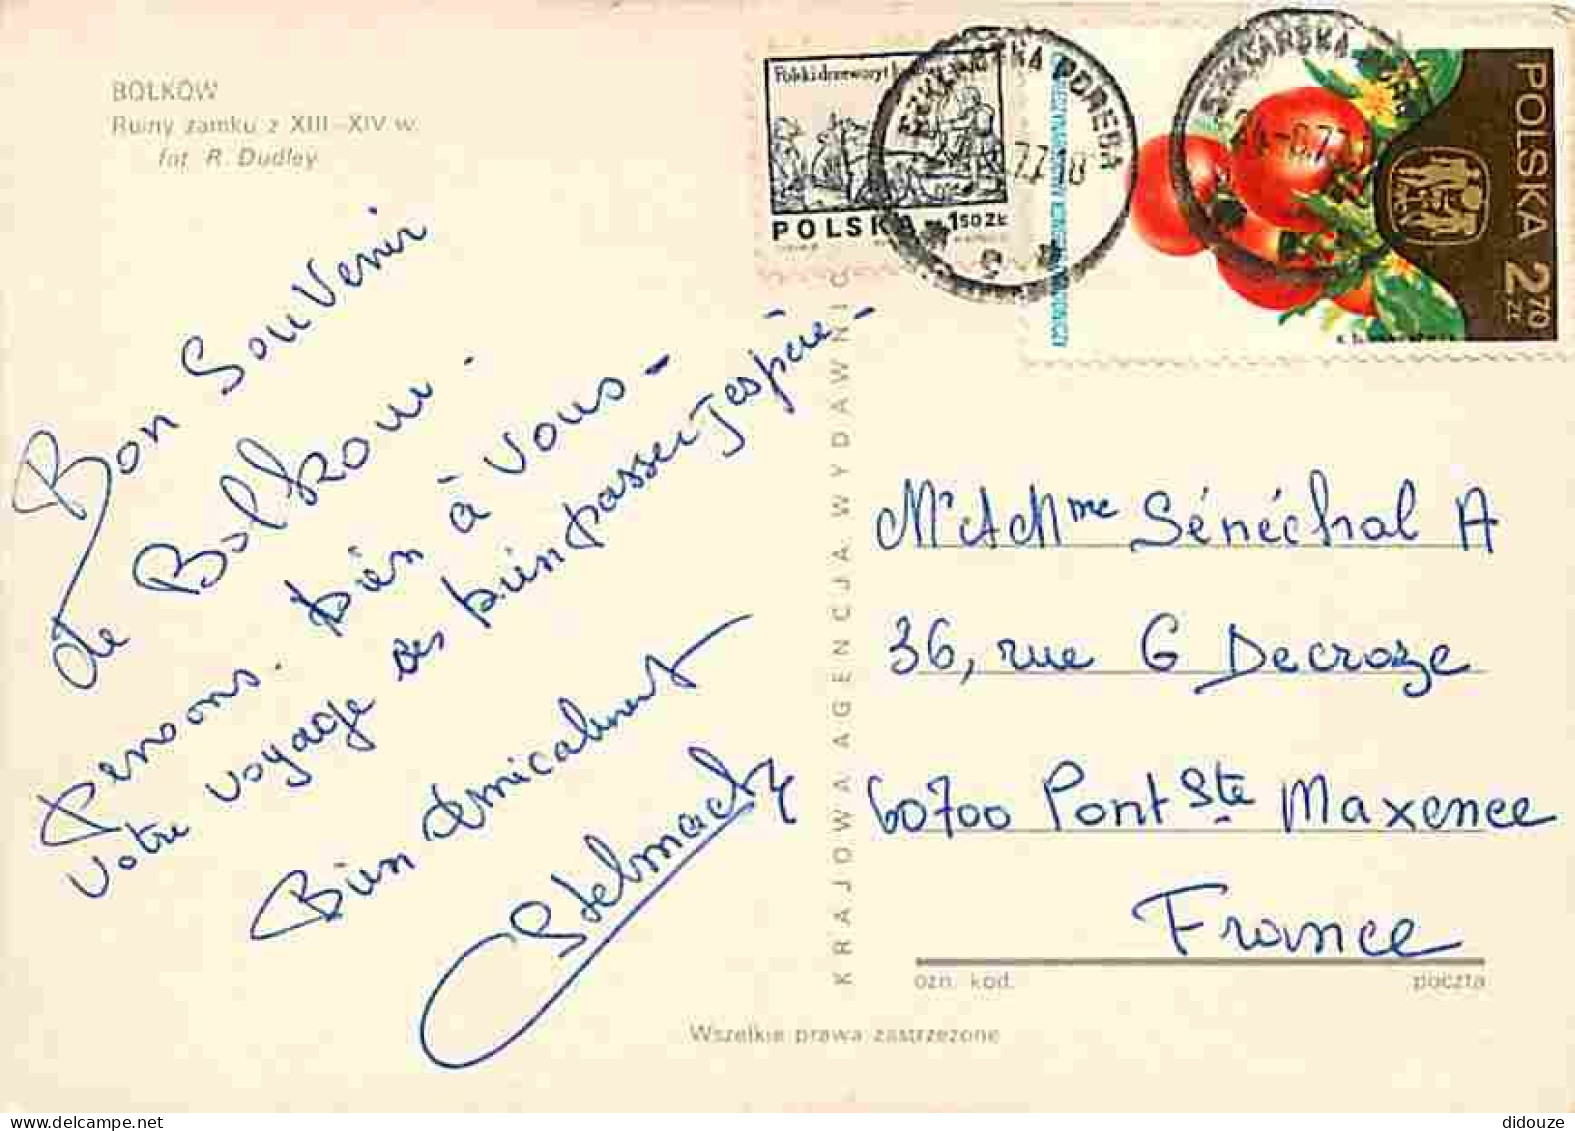 BOLKÓW
Ruiny zamku z XIII–XIV w.
fot. R. Dudley
Bon Souvenir
de Bolkow.
pensons. bien à Vous –
Votre voyage ses bien passer J'espère –
Bien Amicalement
Stelmach
KRAJOWA AGENCJA WYDAWNIC
Polski drzeworyt
POLSKA 1,50 ZŁ
SZKLARSKA PORĘBA
SZKLARSKA PORĘBA
POLSKA 2,70 ZŁ
Mr et Mme Sénéchal A
36, rue G Decroze
60700 Pont Ste Maxence
France
ozn. kod. poczta
Wszelkie prawa zastrzeżone
didouze